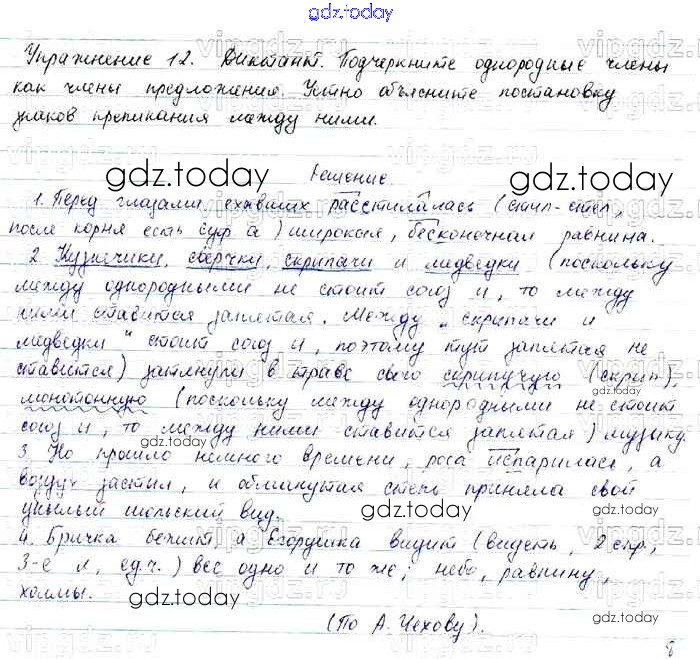 gdz.today
Упражнение 12. Диктант. Подчеркните однородные члены
как члены предложения. Устно объясните постановку
знаков препинания между ними.
gdz.today
Решение
gdz.today
1. Перед глазами ехавших расстилалась (стил-стел,
после корня есть суф а) широкая, бесконечная равнина.
2. Кузнечики, сверчки, скрипачи и медведки (поскольку
между однородными не стоит союз и, то между
ними ставится запятая. Между „скрипачи и
медведки" стоит союз и, поэтому тут запятая не
ставится) затянули в траве свою скрипучую (скрип),
монотонную (поскольку между однородными не стоит
союз и, то между ними ставится запятая) музыку.
gdz.today
3. Но прошло немного времени, роса испарилась, а
воздух застыл, и обманутая степь приняла свой
унылый июльский вид.
gdz.today
4. Бричка бежит, а Егорушка видит (видеть, 2 спр.,
3-е л, ед.ч.) все одно и то же; небо, равнину,
холмы.
gdz.today
(По А. Чехову).
8